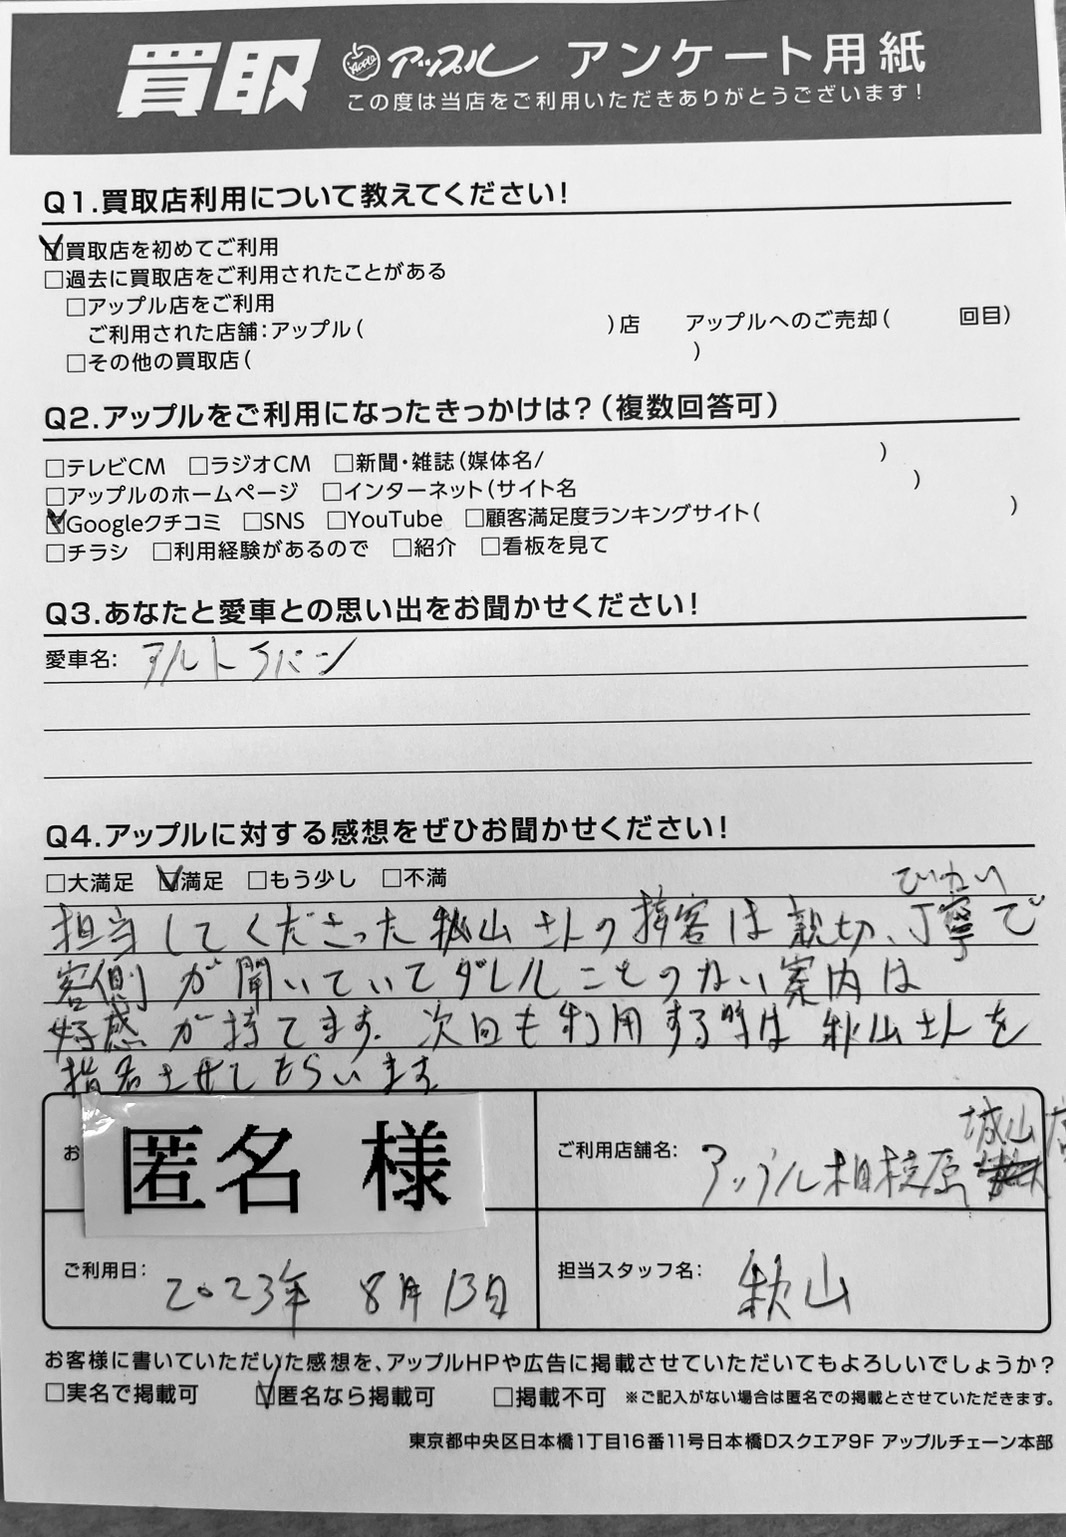 買取 Apple アップル アンケート用紙
この度は当店をご利用いただきありがとうございます!
Q1.買取店利用について教えてください!
☑買取店を初めてご利用
□過去に買取店をご利用されたことがある
□アップル店をご利用
ご利用された店舗:アップル( )店 アップルへのご売却( 回目)
□その他の買取店( )
Q2.アップルをご利用になったきっかけは?(複数回答可)
□テレビCM □ラジオCM □新聞・雑誌(媒体名/ )
□アップルのホームページ □インターネット(サイト名 )
☑Googleクチコミ □SNS □YouTube □顧客満足度ランキングサイト( )
□チラシ □利用経験があるので □紹介 □看板を見て
Q3.あなたと愛車との思い出をお聞かせください!
愛車名: アルトラパン
Q4.アップルに対する感想をぜひお聞かせください!
□大満足 ☑満足 □もう少し □不満
担当してくださった秋山さんの接客は親切、丁寧で
客側が聞いていてダレルことのない案内は
好感が持てます。次回も利用する時は秋山さんを
指名させてもらいます。
お
匿名 様
ご利用店舗名: アップル相模原 城山店
ご利用日: 2023年 8月13日
担当スタッフ名: 秋山
お客様に書いていただいた感想を、アップルHPや広告に掲載させていただいてもよろしいでしょうか?
□実名で掲載可 ☑匿名なら掲載可 □掲載不可 ※ご記入がない場合は匿名での掲載とさせていただきます。
東京都中央区日本橋1丁目16番11号日本橋Dスクエア9F アップルチェーン本部